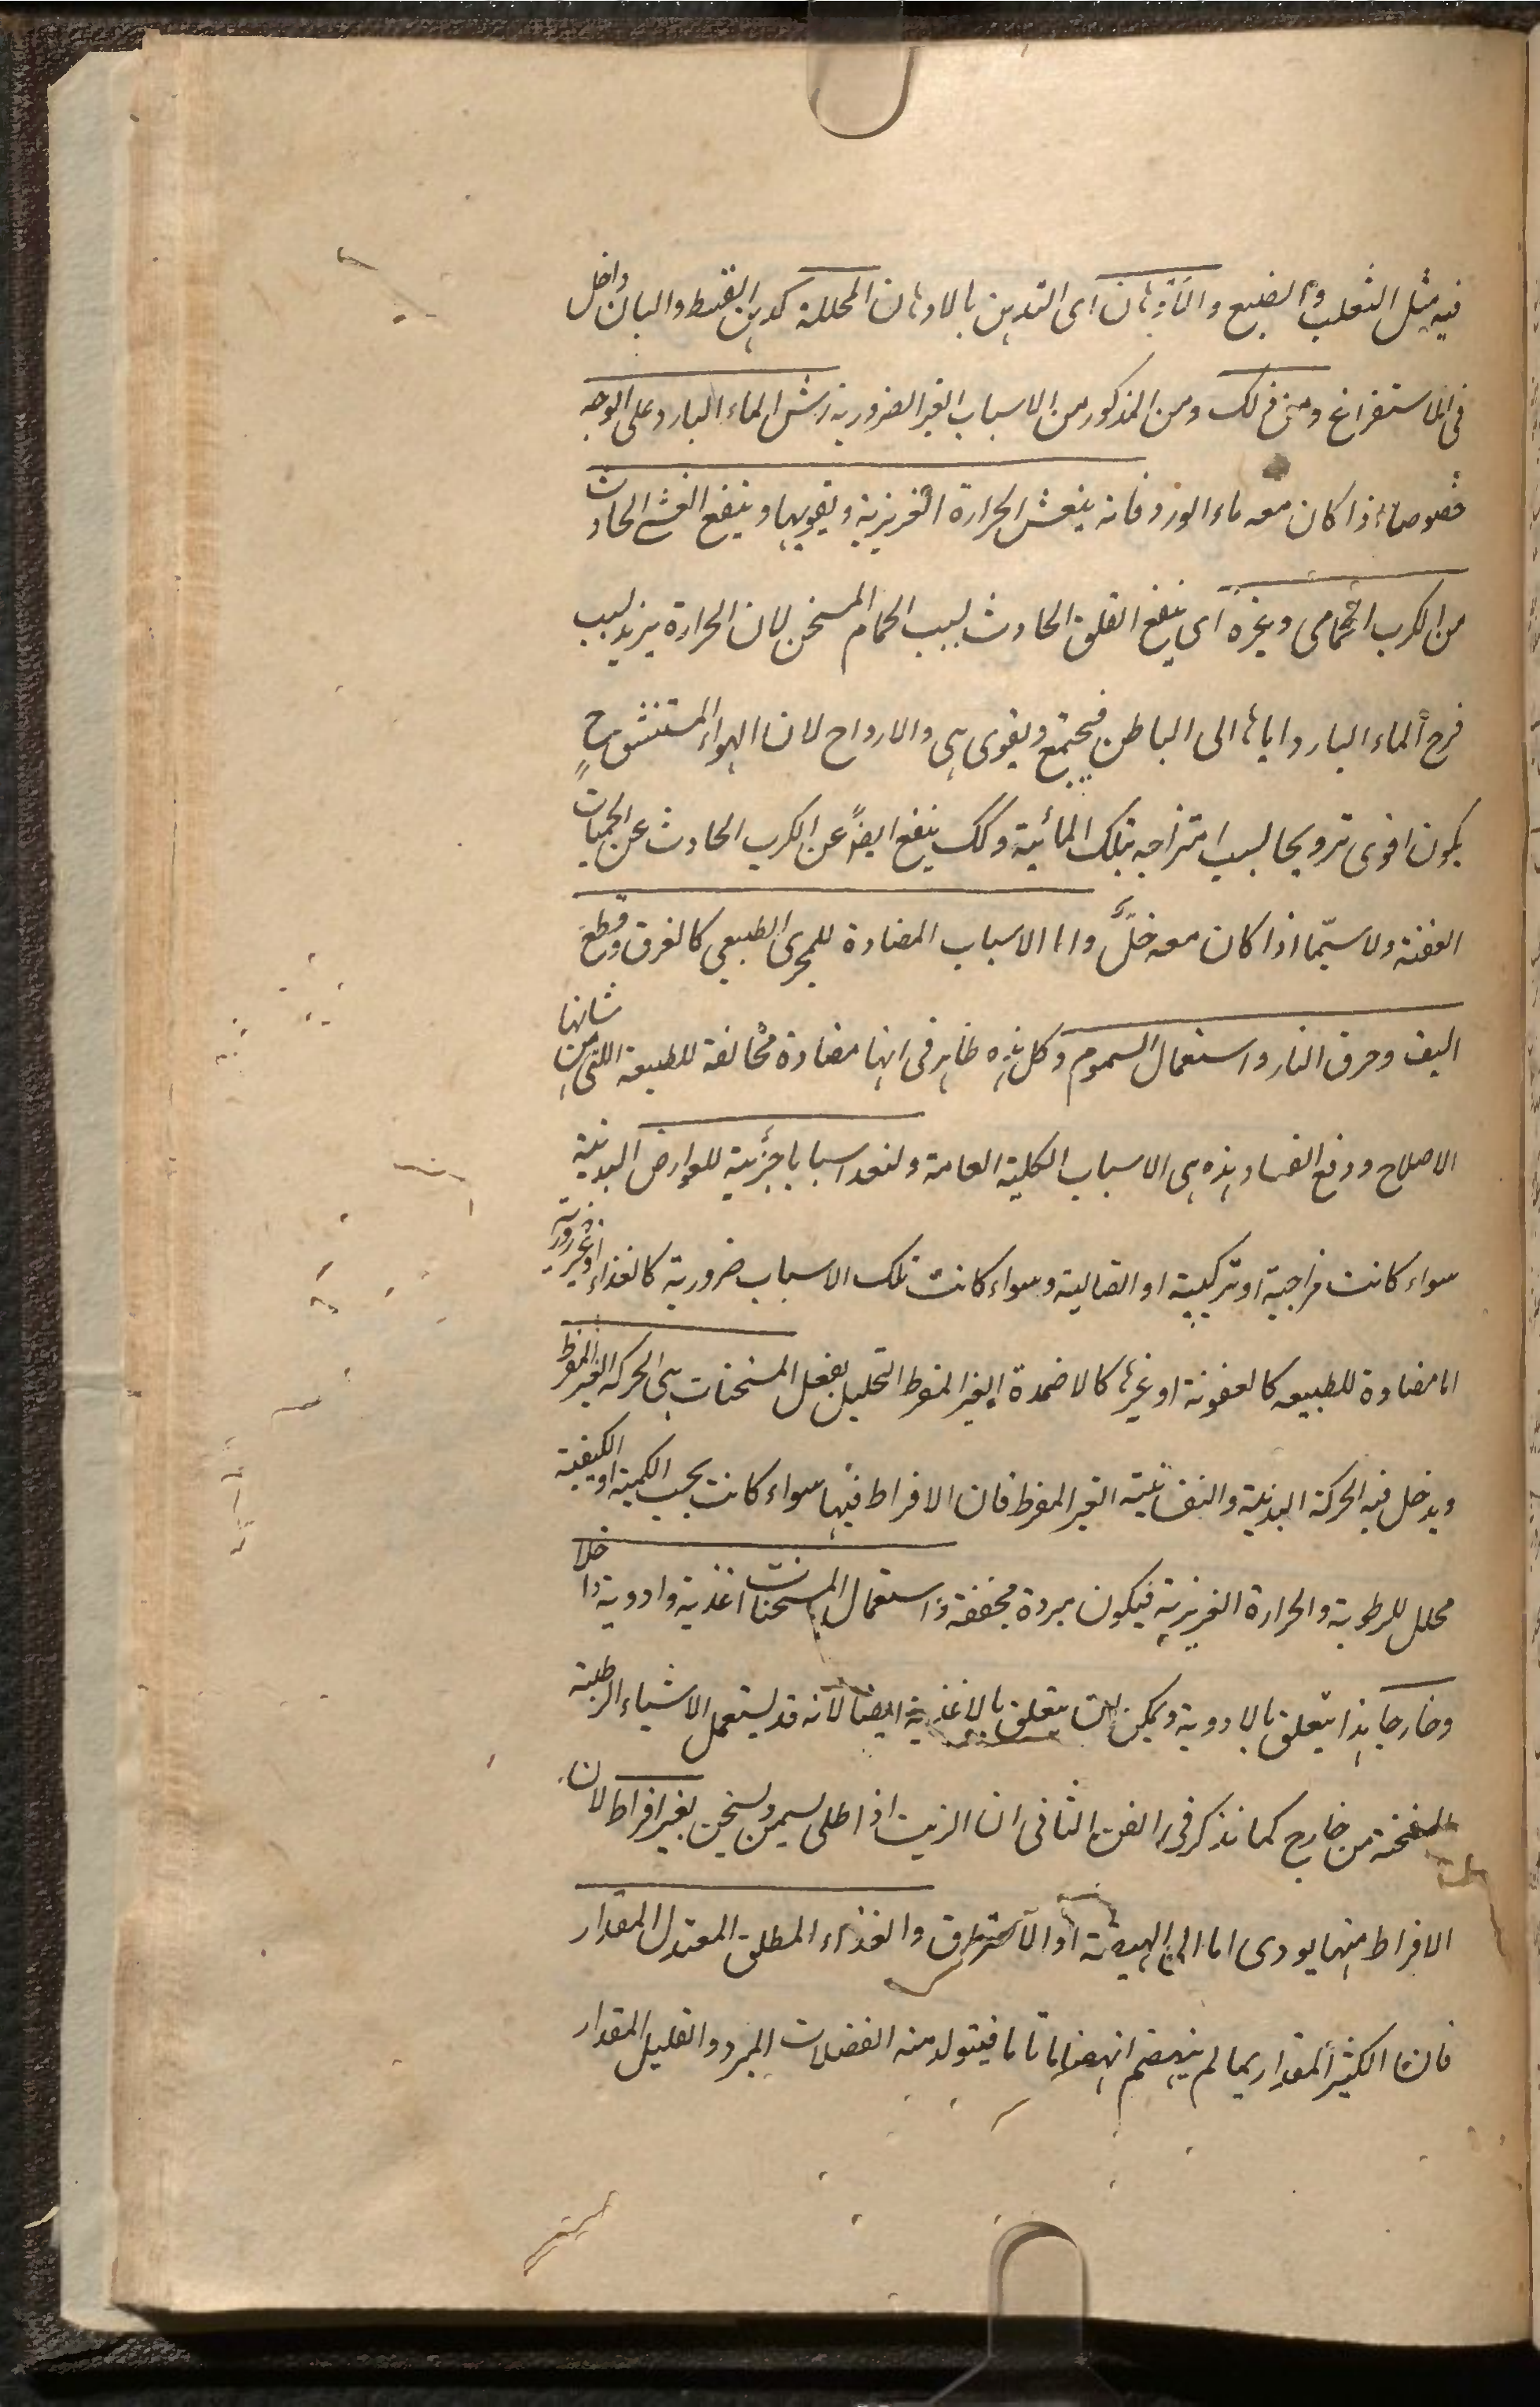 فيه مثل الثعلب والضبع والادهان اى التدهين بالادهان المحللة كدهن القسط والبان داخل
فى الاستفراغ ومن ذلك ومن المذكور من الاسباب الغير الضرورية رش الماء البارد على الوجه
خصوصا اذا كان معه ماء الورد فانه ينعش الحرارة الغريزية ويقويها وينفع الغشى الحادث
من الكرب الحمامى وغيره اى ينفع القلق الحادث بسبب الحمام المسخن لان الحرارة يزيد بسبب
الماء البارد اياها الى الباطن فيجتمع ويقوى هى والارواح لان الهواء المستنشق ح
يكون اقوى ترويحا لسبب امتزاجه بتلك المائية وكك ينفع ايضا عن الكرب الحادث عن الحميات
العفنة ولاسيّما اذا كان معه خلٌّ واما الاسباب المضادة للمجرى الطبيعى كالغرق وقطع
السيف وحرق النار واستعمال السموم وكل هذه ظاهر فى انها مضادة مخالفة للطبيعة اللتى من شانها
الاصلاح ودفع الفساد هذه هى الاسباب الكلية العامة ولنعد اسبابا جزئية للعوارض البدنية
سواء كانت مزاجية او تركيبية او اتصالية وسواء كانت تلك الاسباب ضرورية كالغذاء او غير ضرورية
اما مضادة للطبيعه كالعفونة او غيرها كالاضمدة الغير المفرط التحليل بفعل المسخنات هى الحركه الغير المفرط
ويدخل فيه الحركة البدنية والنفسانية الغير المفرط فان الافراط فيها سواء كانت بحسب الكمية او الكيفية
محلل للرطوبة والحرارة الغريزية فيكون مبردة مجففة واستعمال المسخنات اغذية وادوية داخلا
وخارجا هذا يتعلق بالادوية ويمكن ان يتعلق بالاغذية ايضا لانه قد يستعمل الاشياء الرطبة
المسخنة من خارج كما نذكر فى الفن الثانى ان الزيت اذا طلى يسمن ويسخن بغير افراط لان
الافراط منها يودى اما الى الهيضة او الاحتراق والغذاء المطلق المعتدل المقدار
فان الكثير المقدار بما لم ينهضم انهضاما تاما فيتولد منه الفضلات المبرد والقليل المقدار